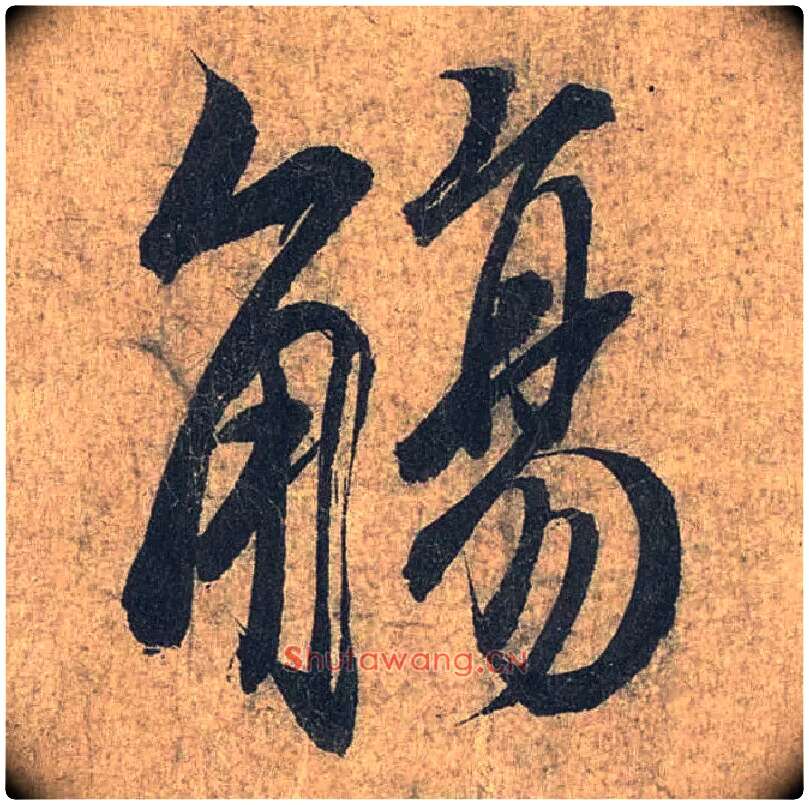 觴
Shufawang.CN